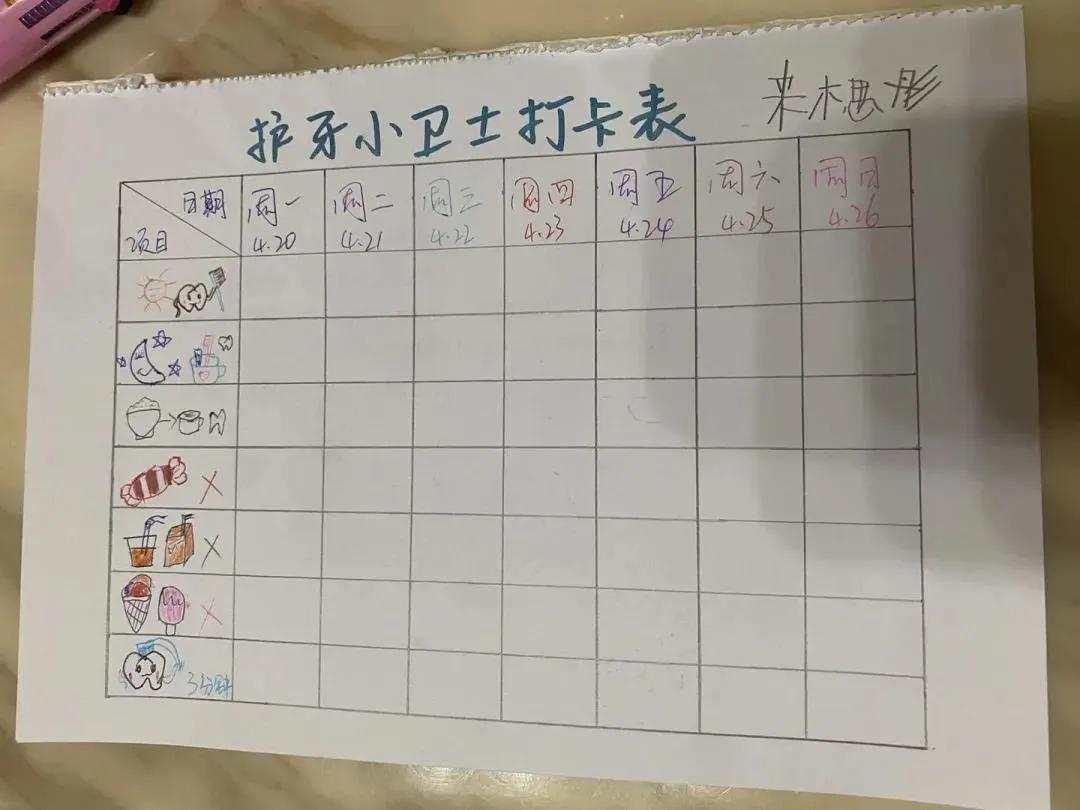 护牙小卫士打卡表
来木想彤
日期 周一 周二 周三 周四 周五 周六 周日
项目 4.20 4.21 4.22 4.23 4.24 4.25 4.26
×
×
×
3分钟